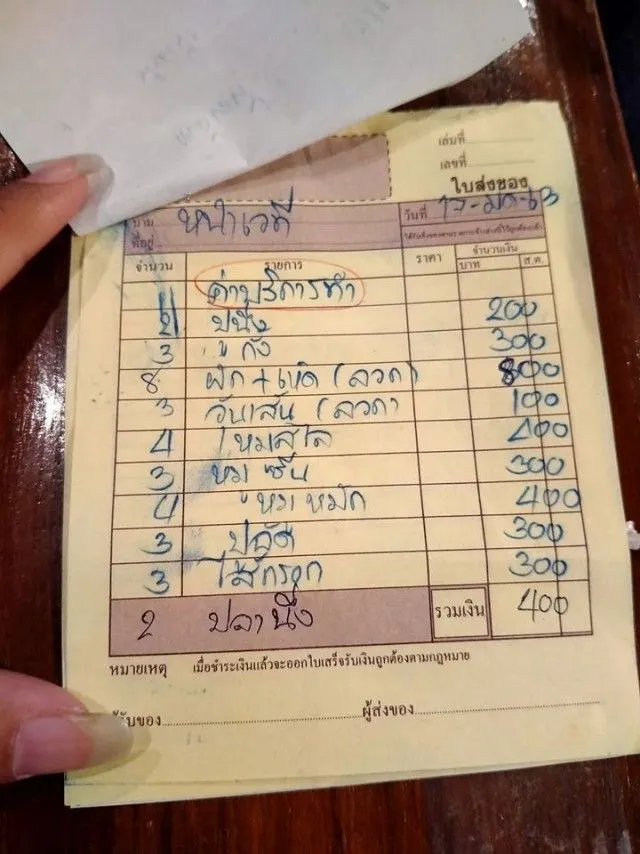 เล่มที่
เลขที่
ใบส่งของ
นาม หน้าเวที วันที่ 17-มิก-63
ที่อยู่
จำนวน รายการ ราคา จำนวนเงิน
บาท ส.ต.
ค่าบริการ
2 200
3 กุ้ง 300
8 ผัก + เห็ด (ลวก) 800
3 วุ้นเส้น (ลวก) 100
4 400
3 หมูชิ้น 300
4 หมูหมัก 400
3 300
3 ไส้กรอก 300
2 ปลานึ่ง รวมเงิน 400
หมายเหตุ เมื่อชำระเงินแล้วจะออกใบเสร็จรับเงินถูกต้องตามกฎหมาย
ผู้รับของ ผู้ส่งของ